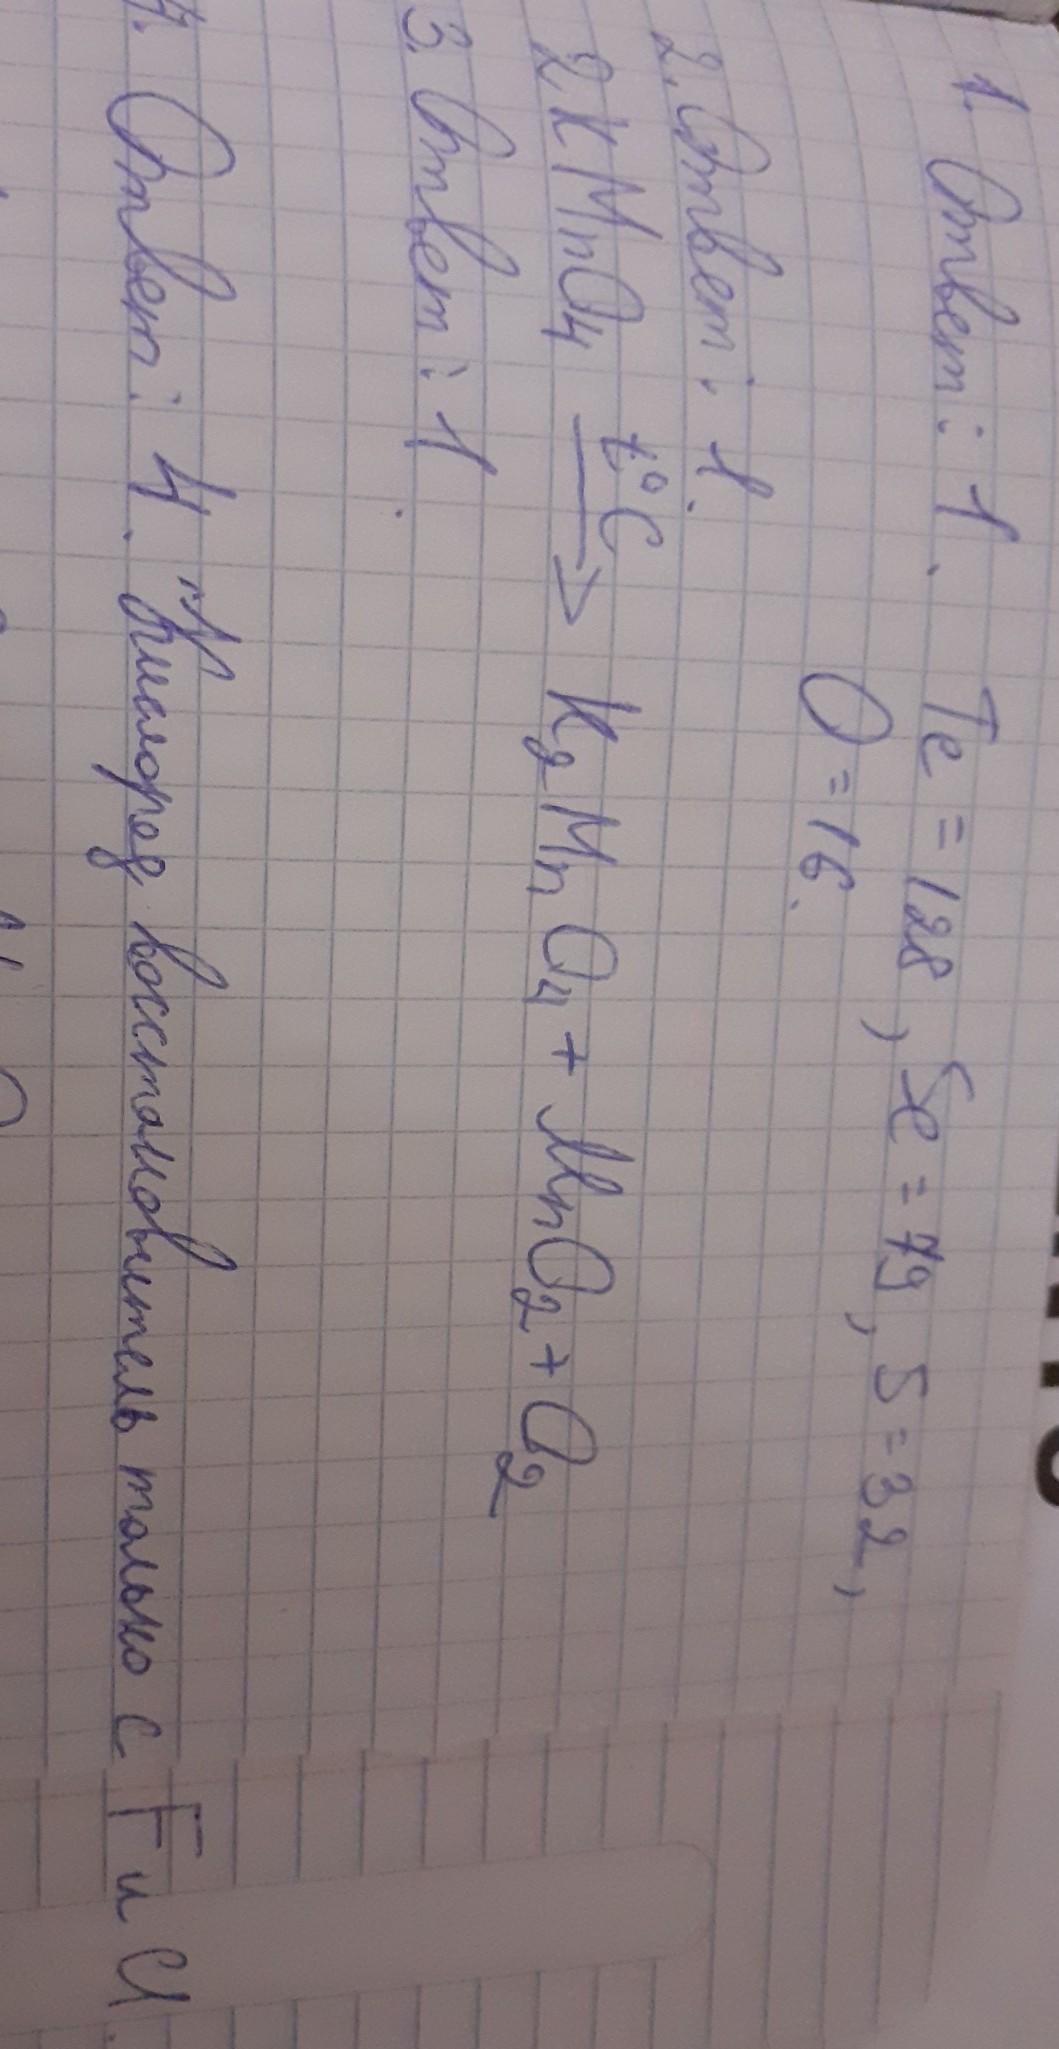 1. Ответ: 1. Te = 128, Se = 79, S = 32,
O = 16.
2. Ответ: 1.
2KMnO4 t°C → K2MnO4 + MnO2 + O2
3. Ответ: 1
Ответ: 4. восстановитель только с F и Cl.